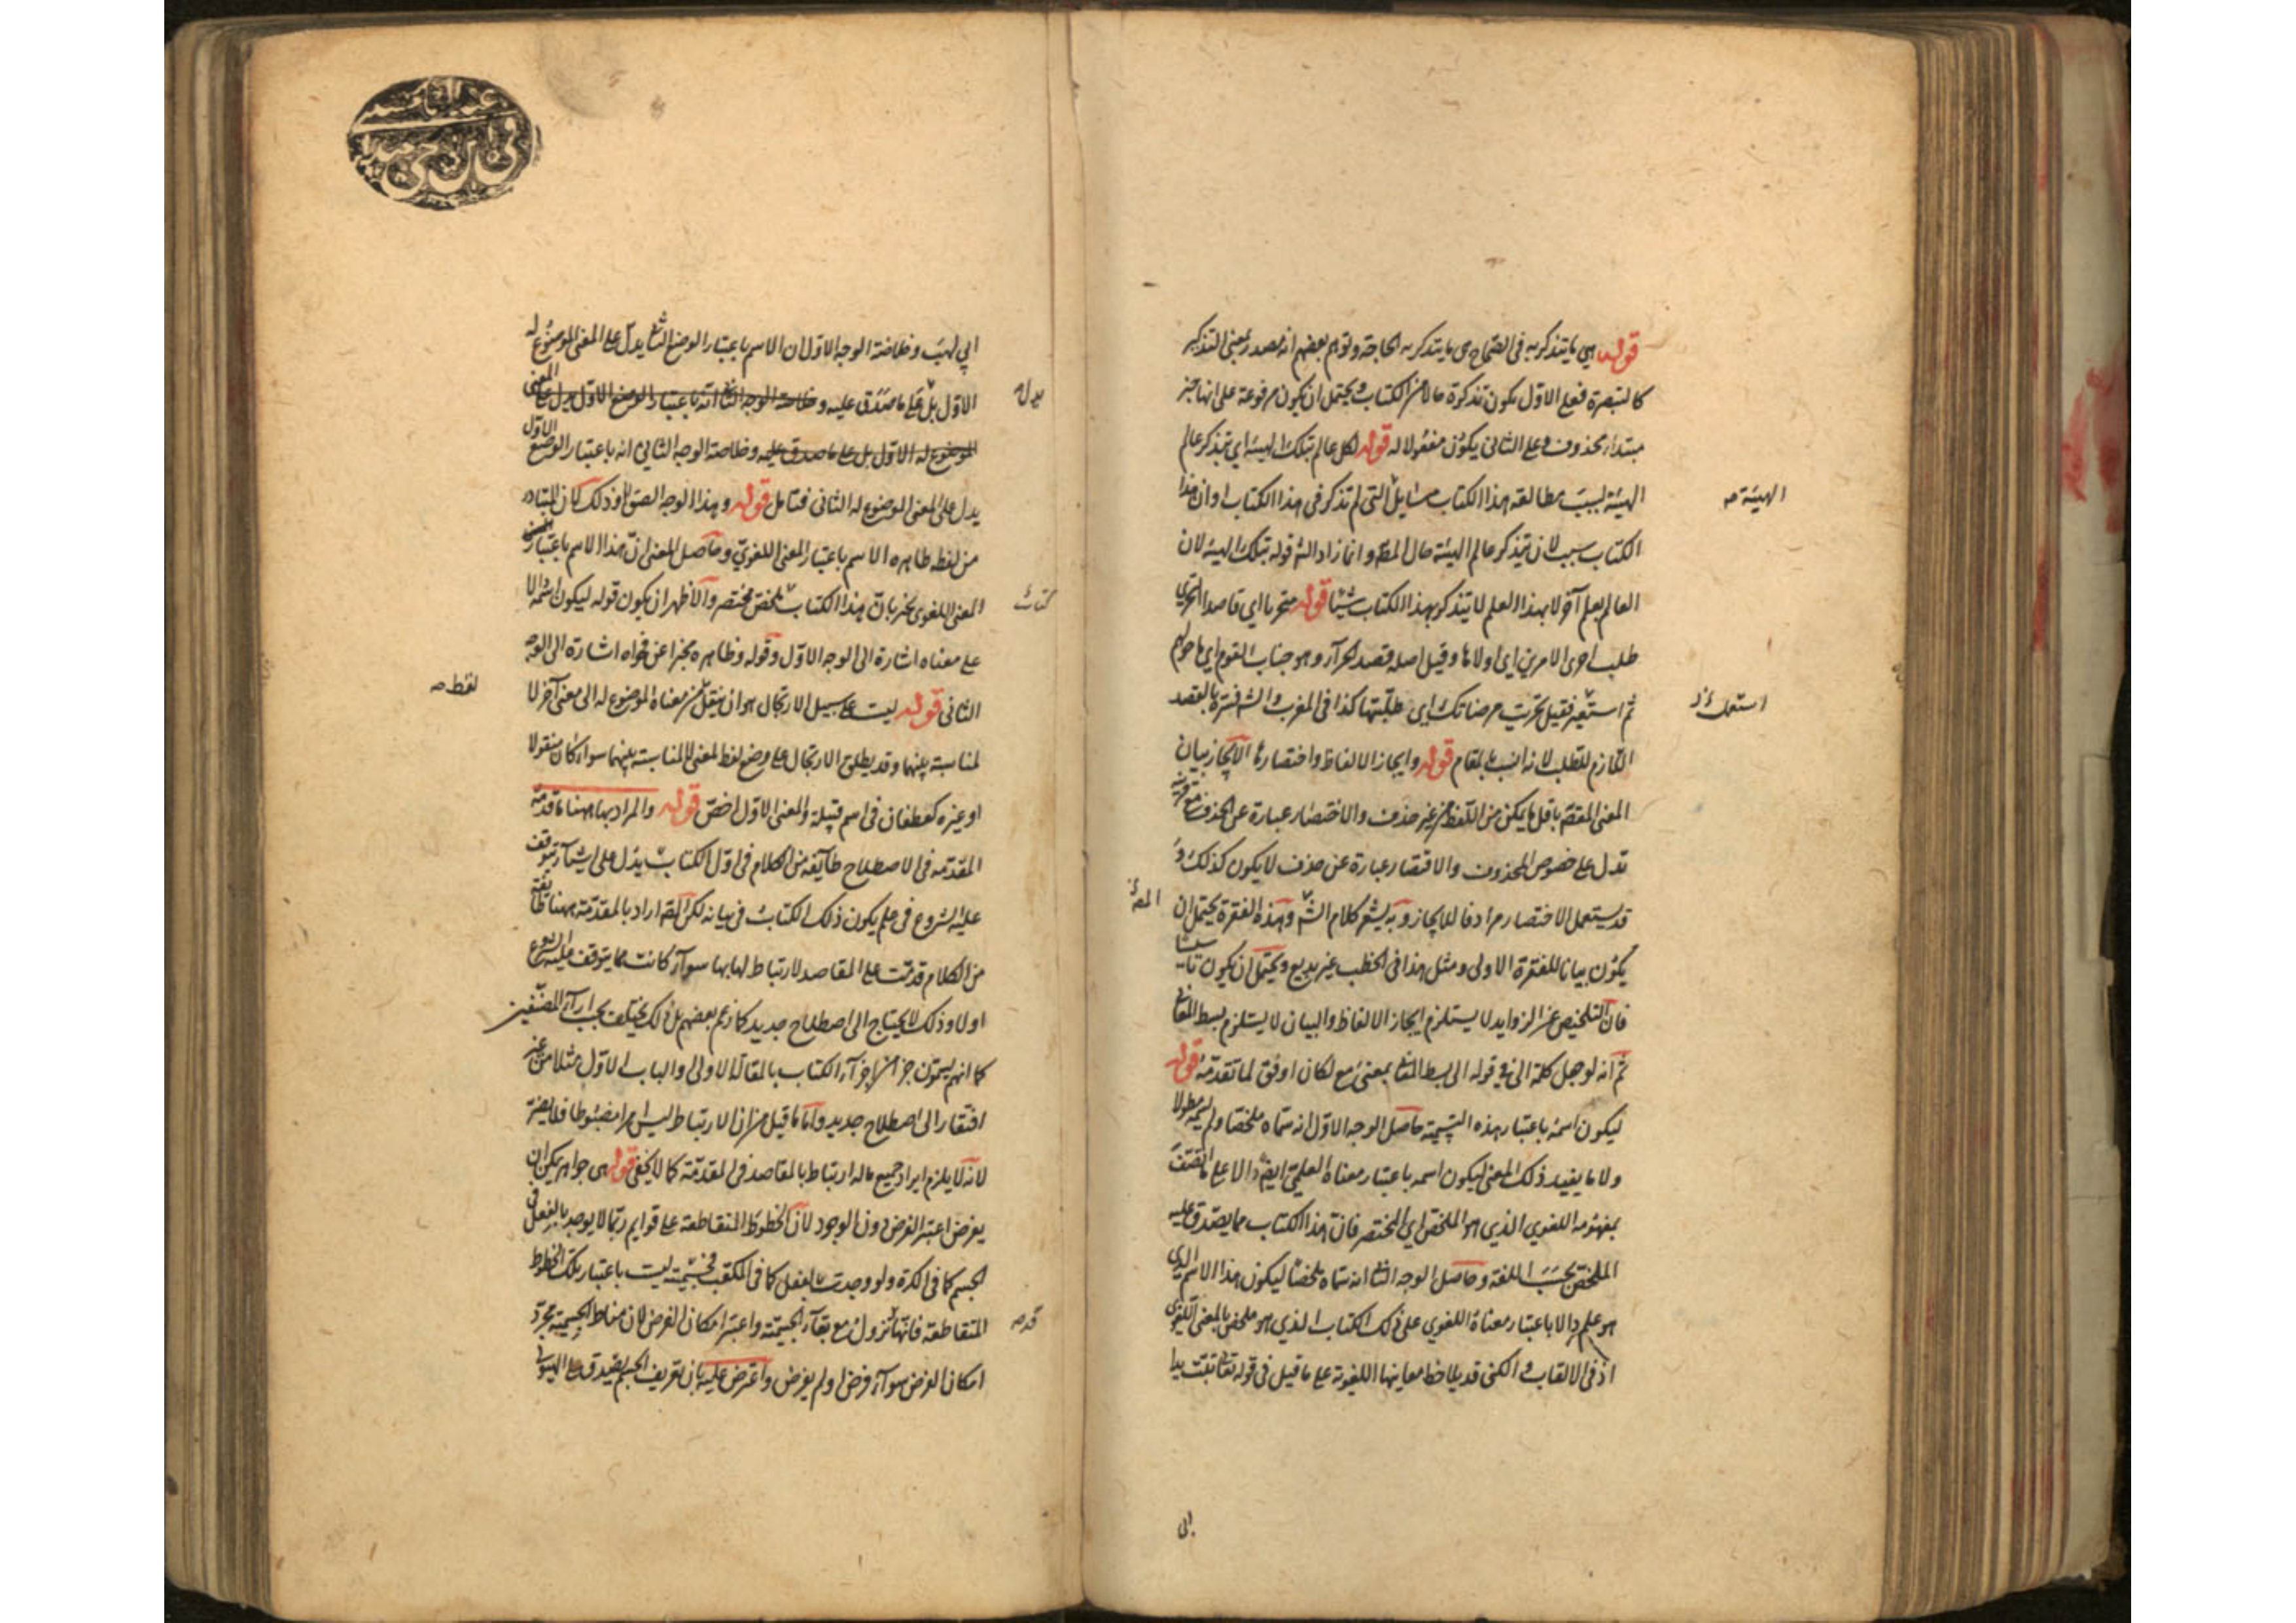 قوله هي ما يتذكر به في الصحاح هي ما يتذكر به الحاجة وتوهم بعضهم انه مصدر بمعنى التذكير
كالتبصرة فعلى الاول يكون تذكرة حالا من الكتاب ويحتمل ان يكون مرفوعة على انها خبر
مبتداء محذوف وعلى الثاني يكون مفعولا له قوله لكل عالم بتلك الهيئة اي يتذكر عالم
الهيئة بسبب مطالعة هذا الكتاب مسايل التي لم تذكر في هذا الكتاب او ان هذا
الكتاب سبب لان يتذكر عالم الهيئة حال المطـ وانما زاد الش قوله بتلك الهيئة لان
العالم بعلم آخر لا بهذا العلم لا يتذكر بهذا الكتاب شيئا قوله متحريا اي قاصدا التحري
طلب احرى الامرين اي اولاهما وقيل اصله قصد الحرآ وهو جناب القوم اي ما حولهم
ثم استعير فقيل تحريت مرضاتك اي طلبتها كذا في المغرب والش فسره بالقصد
اللازم للطلب لانه انسب بالمقام قوله وايجاز الالفاظ واختصارها الايجاز بيان
المعنى المقصـ باقل ما يمكن من اللفظ من غير حذف والاختصار عبارة عن الحذف مع قرينة
تدل على خصوص المحذوف والاقتصار عبارة عن حذف لا يكون كذلك و
قد يستعمل الاختصار مرادفا للايجاز وبه يشعر كلام الش وهذه الفقرة يحتمل ان
يكون بيانا للفقرة الاولى ومثل هذا في الخطب غير بديع ويحتمل ان يكون تاسيسا
فان التلخيص عن الزوايد لا يستلزم ايجاز الالفاظ والبيان لا يستلزم بسط المعاني
ثم انه لو جعل كلمة الى في قوله الى بسط المعاني بمعنى مع لكان اوفق لما تقدمه قوله
ليكون اسمه باعتبار هذه التسمية حاصل الوجه الاول انه سماه ملخصا ولم يسمه مطولا
ولا ما يفيد ذلك المعنى ليكون اسمه باعتبار معناه العلمي ايضـ دالا على ما اتصف
بمفهومه اللغوي الذي هو الملخص اي المختصر فان هذا الكتاب مما يصدق عليه
الملخص بحسب اللغة وحاصل الوجه الثاني انه سماه ملخصا ليكون هذا الاسم الذي
هو علم دالا باعتبار معناه اللغوي على ذلك الكتاب الذي هو ملخص بالمعنى اللغوي
اذ في الالقاب والكنى قد يلاحظ معاينها اللغوية على ما قيل في قوله تعالى تبت يدا
الهيئة صه
ابي لهب وخلاصة الوجه الاول ان الاسم باعتبار الوضع الثاني يدل على المعنى الموضوع له
الاول بل على ما صدق عليه وخلاصة الوجه الثاني انه باعتبار الوضع الاول يدل على المعنى
الموضوع له الاول بل على ما صدق عليه وخلاصة الوجه الثاني انه باعتبار الوضع الاول
يدل على المعنى الموضوع له الثاني فتامل قوله وهذا الوجه الصق وذلك لان المتبادر
من لفظه ظاهره الاسم باعتبار المعنى اللغوي وحاصل المعنى ان هذا الاسم باعتبار
المعنى اللغوي يخبر بان هذا الكتاب ملخص مختصر والاظهر ان يكون قوله ليكون اسمه دالا
على معناه اشارة الى الوجه الاول وقوله وظاهره مخبرا عن فحواه اشارة الى الوجه
الثاني قوله ليست على سبيل الارتجال هو ان ينقل من معناه الموضوع له الى معنى آخر لا
لمناسبة بينهما وقد يطلق الارتجال على وضع لفظ لمعنى لا لمناسبة بينهما سواء كان منقولا
او غيره كغطفان في اسم قبيلة والمعنى الاول اخص قوله والمراد بها ههنا ما قدمه
المقدمة في الاصطلاح طآيفة من الكلام في اول الكتاب يدل على اشيآء يتوقف
عليه الشروع في علم يكون ذلك الكتاب في بيانه لكن المصـ اراد بالمقدمة ههنا طائفة
من الكلام قدمت على المقاصد لارتباط لها بها سوآء كانت مما يتوقف عليه الشروع
اولا وذلك لا يحتاج الى اصطلاح جديد كما زعم بعضهم بل ذلك يختلف بحسب ارآء المصنفين
كما انهم يسمون جزءا من اجزآء الكتاب بالمقالة الاولى والباب الاول مثلا من غير
افتقار الى اصطلاح جديد واما ما قيل من ان الارتباط ليس امرا مضبوطا فلا يضره
لانه لا يلزم ايراد جميع ما له ارتباط بالمقاصد في المقدمة كما لا يخفى قوله هي جواهر يمكن ان
يفرض اعتبر الفرض دون الوجود لان الخطوط المتقاطعة على قوايم ربما لا يوجد بالفعل في
الجسم كما في الكرة ولو وجدت بالفعل كما في المكعب فجسميته ليست باعتبار تلك الخطوط
المتقاطعة فانها تزول مع بقآء الجسمية واعتبر امكان الفرض لان مناط الجسمية مجرد
امكان الفرض سوآء فرض او لم يفرض واعترض عليه بان تعريف الجسم يصدق على الهيولى
لفظ صه